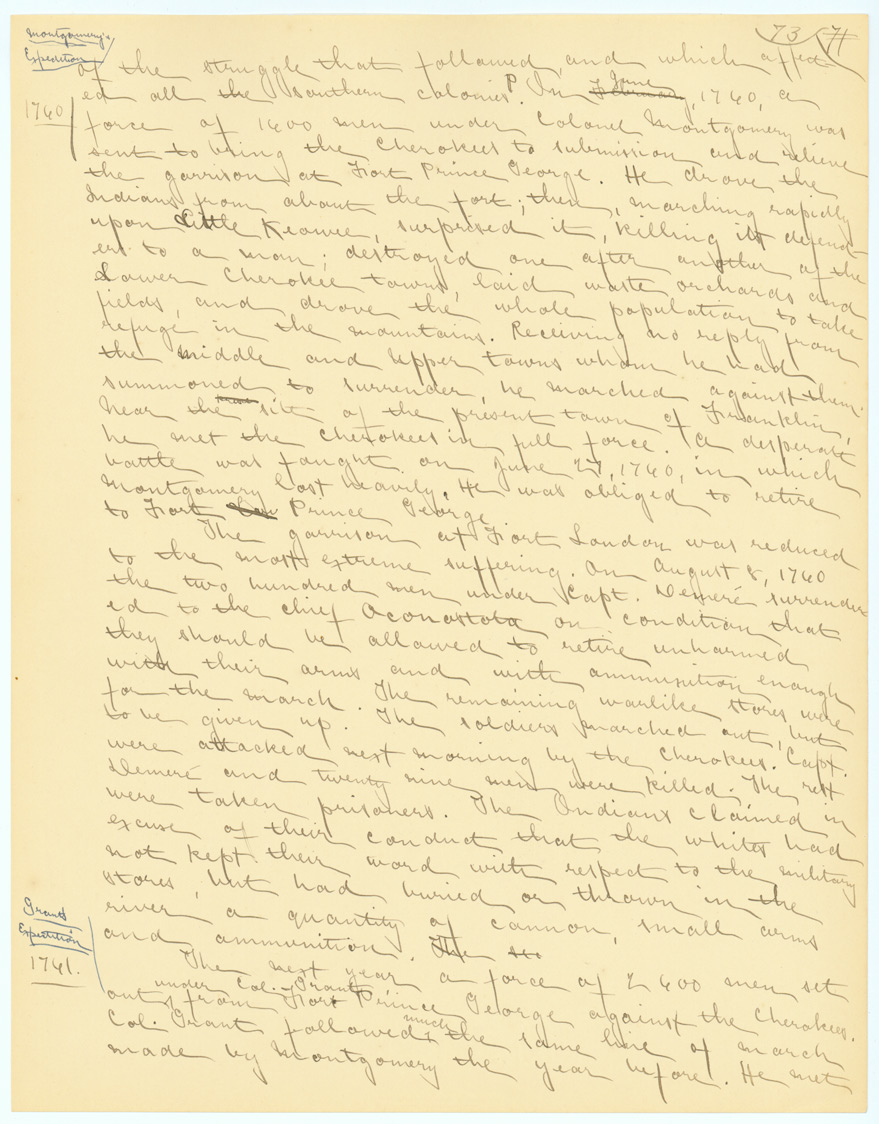 Montgomery's
Expedition
73 71
of the struggle that followed, and which affect-
ed all the southern colonies. In June, 1760, a
1760
force of 1600 men under Colonel Montgomery was
sent to bring the Cherokees to submission and relieve
the garrison at Fort Prince George. He drove the
Indians from about the fort; then, marching rapidly
upon Little Keowee, surprised it, killing its defend-
ers to a man; destroyed one after another of the
Lower Cherokee towns, laid waste orchards and
fields, and drove the whole population to take
refuge in the mountains. Receiving no reply from
the Middle and Upper towns whom he had
summoned to surrender, he marched against them.
Near the site of the present town of Franklin,
he met the Cherokees in full force. A desperate
battle was fought on June 27, 1760, in which
Montgomery lost heavily. He was obliged to retire
to Fort Prince George.
The garrison at Fort Loudon was reduced
to the most extreme suffering. On August 8, 1760
the two hundred men under Capt. Demeré surrender-
ed to the chief Oconostota on condition that
they should be allowed to retire unharmed
with their arms and with ammunition enough
for the march. The remaining warlike stores were
to be given up. The soldiers marched out, but
were attacked next morning by the Cherokees. Capt.
Demeré and twenty nine men were killed. The rest
were taken prisoners. The Indians claimed in
excuse of their conduct that the whites had
not kept their word with respect to the military
stores, but had buried or thrown in the
river a quantity of cannon, small arms
and ammunition. The
Grant's
Expedition
1761.
The next year a force of 2600 men set
out under Col. Grant from Fort Prince George against the Cherokees.
Col. Grant followed much the same line of march
made by Montgomery the year before. He met